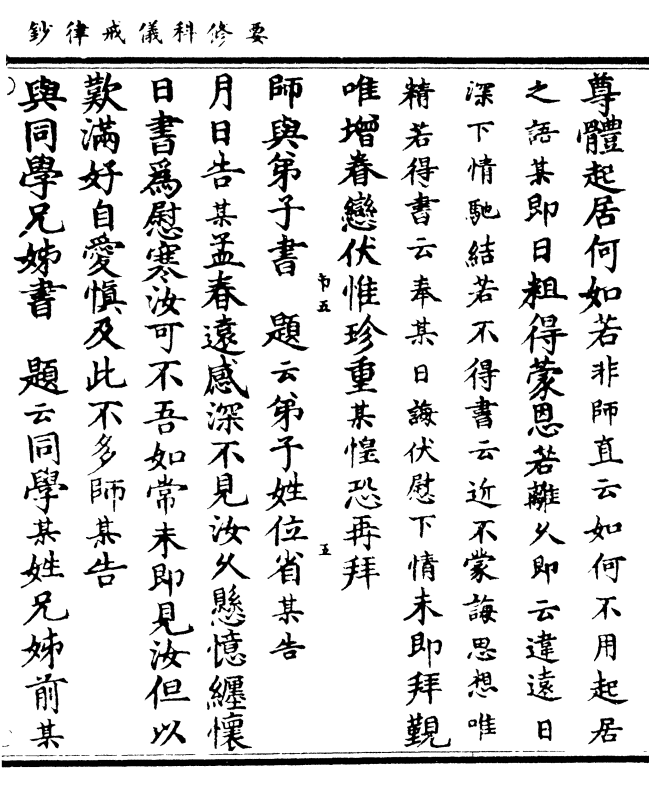 要修科儀戒律鈔
尊體起居何如若非師直云如何不用起居
之語某即日粗得蒙恩若離久即云違遠日
深下情馳結若不得書云近不蒙誨思想唯
精若得書云奉某日誨伏慰下情未即拜覲
唯增眷戀伏惟珍重某惶恐再拜
師與弟子書 題云弟子姓位省某告
月日告某孟春遠感深不見汝久懸憶纏懷
日書爲慰寒汝可不吾如常未即見汝但以
歎滿好自愛慎及此不多師某告
與同學兄姊書 題云同學某姓兄姊前某
五